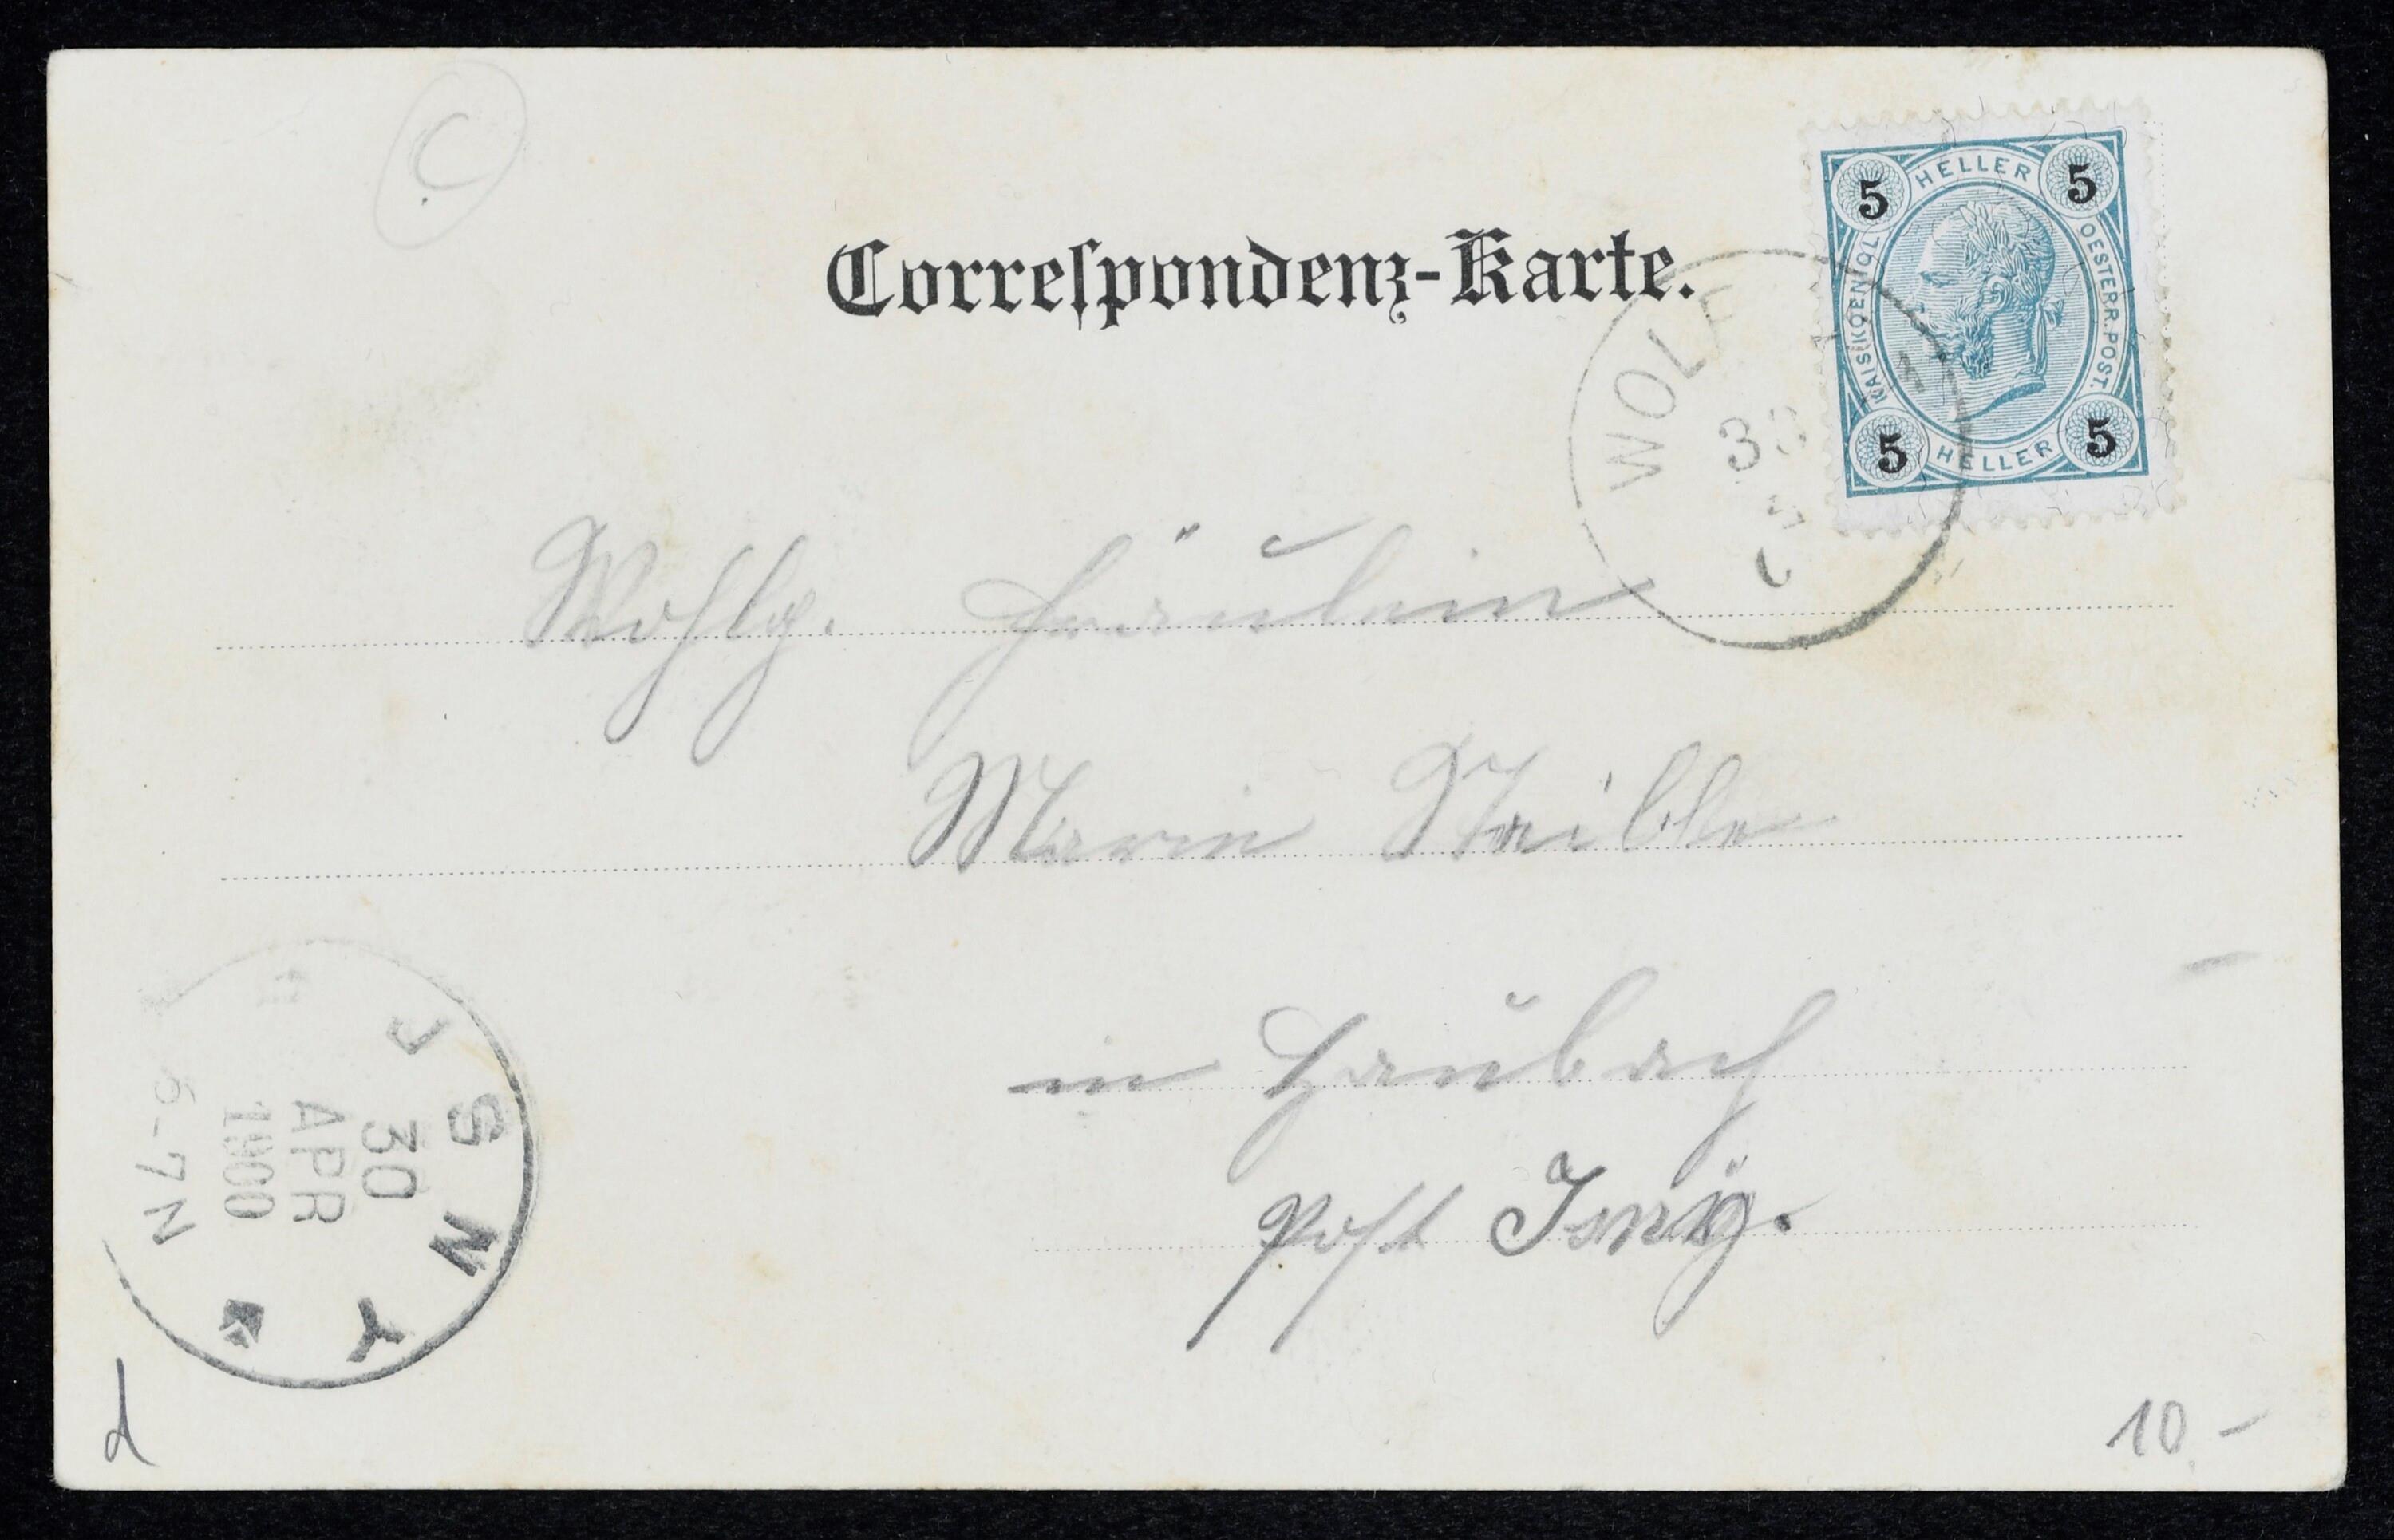 C
Correspondenz-Karte.
5 HELLER 5
KAIS.KOEN OESTERR.POST.
5 HELLER 5
WOLF
30
Wohlg. Fräulein
Marie
in Haubach
Post Isny.
ISNY
30
APR
1900
6-7N
d
10.-